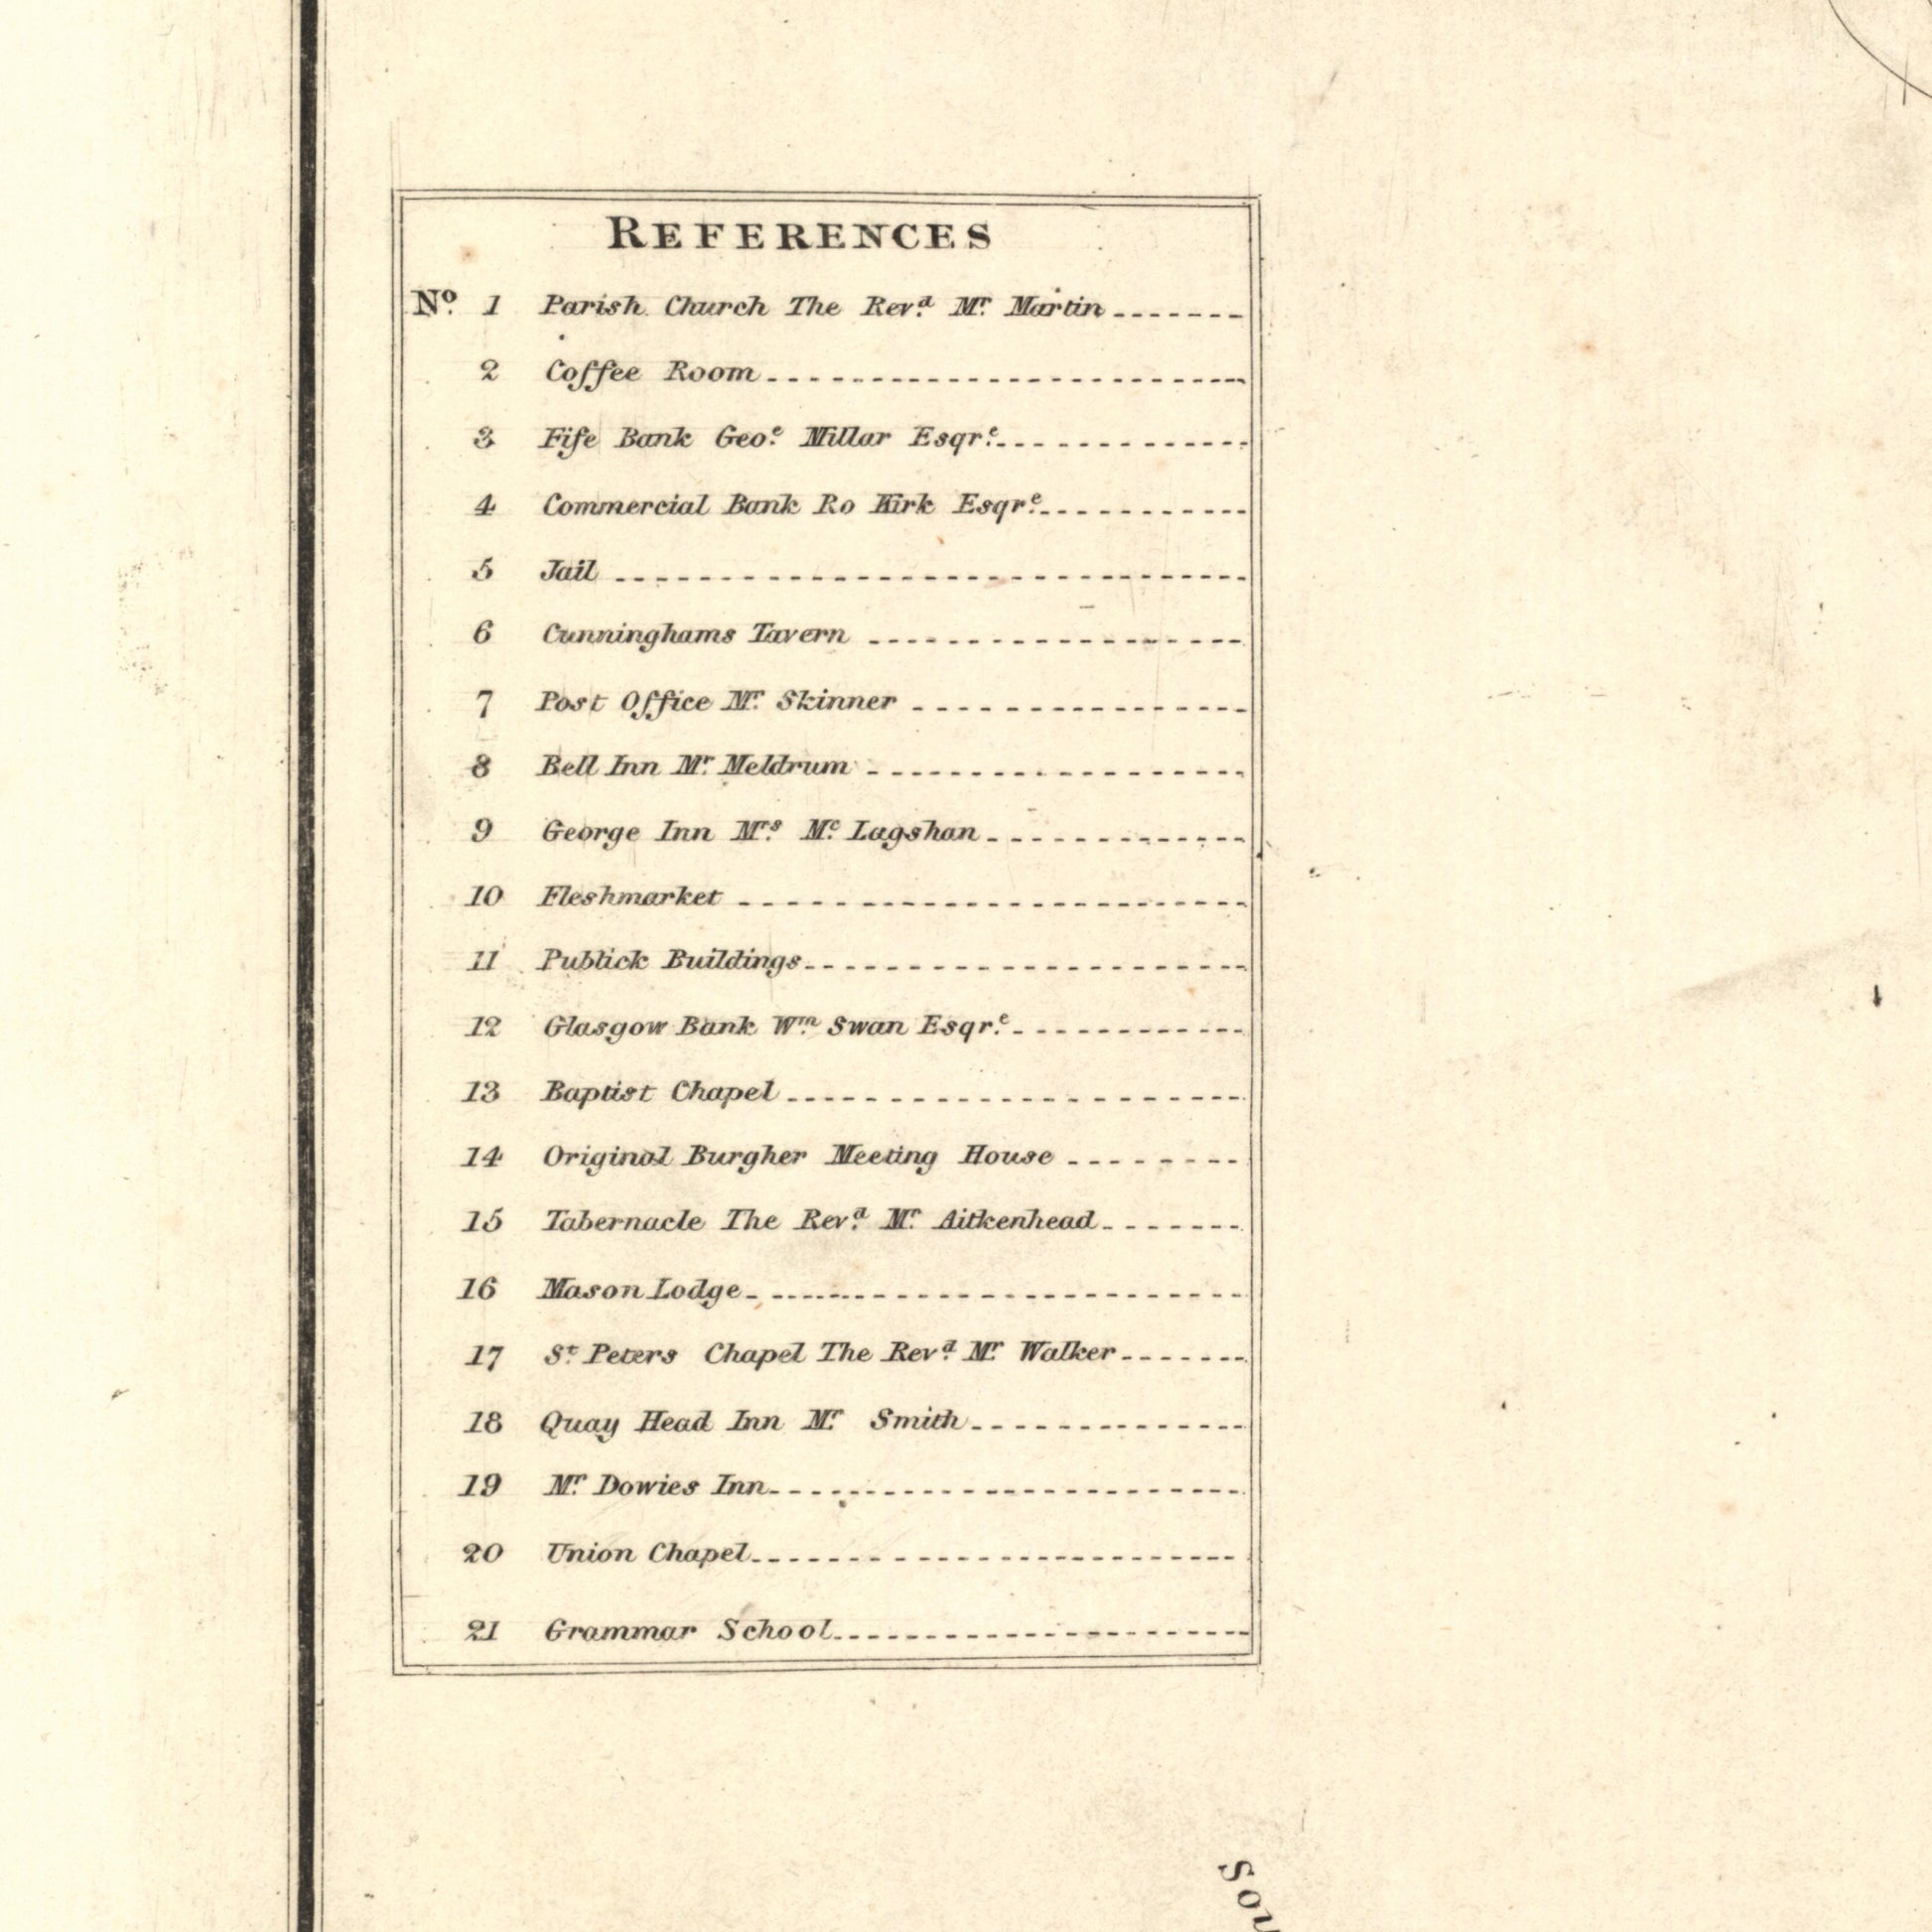 REFERENCES
No. 1 Parish Church The Revd. Mr. Martin
2 Coffee Room
3 Fife Bank Geoe. Millar Esqre.
4 Commercial Bank Ro Kirk Esqre.
5 Jail
6 Cunninghams Tavern
7 Post Office Mr. Skinner
8 Bell Inn Mr. Meldrum
9 George Inn Mrs. Mc. Lagshan
10 Fleshmarket
11 Publick Buildings
12 Glasgow Bank Wm. Swan Esqre.
13 Baptist Chapel
14 Original Burgher Meeting House
15 Tabernacle The Revd. Mr. Aitkenhead
16 Mason Lodge
17 St. Peters Chapel The Revd. Mr. Walker
18 Quay Head Inn Mr. Smith
19 Mr. Dowies Inn
20 Union Chapel
21 Grammar School
Sou